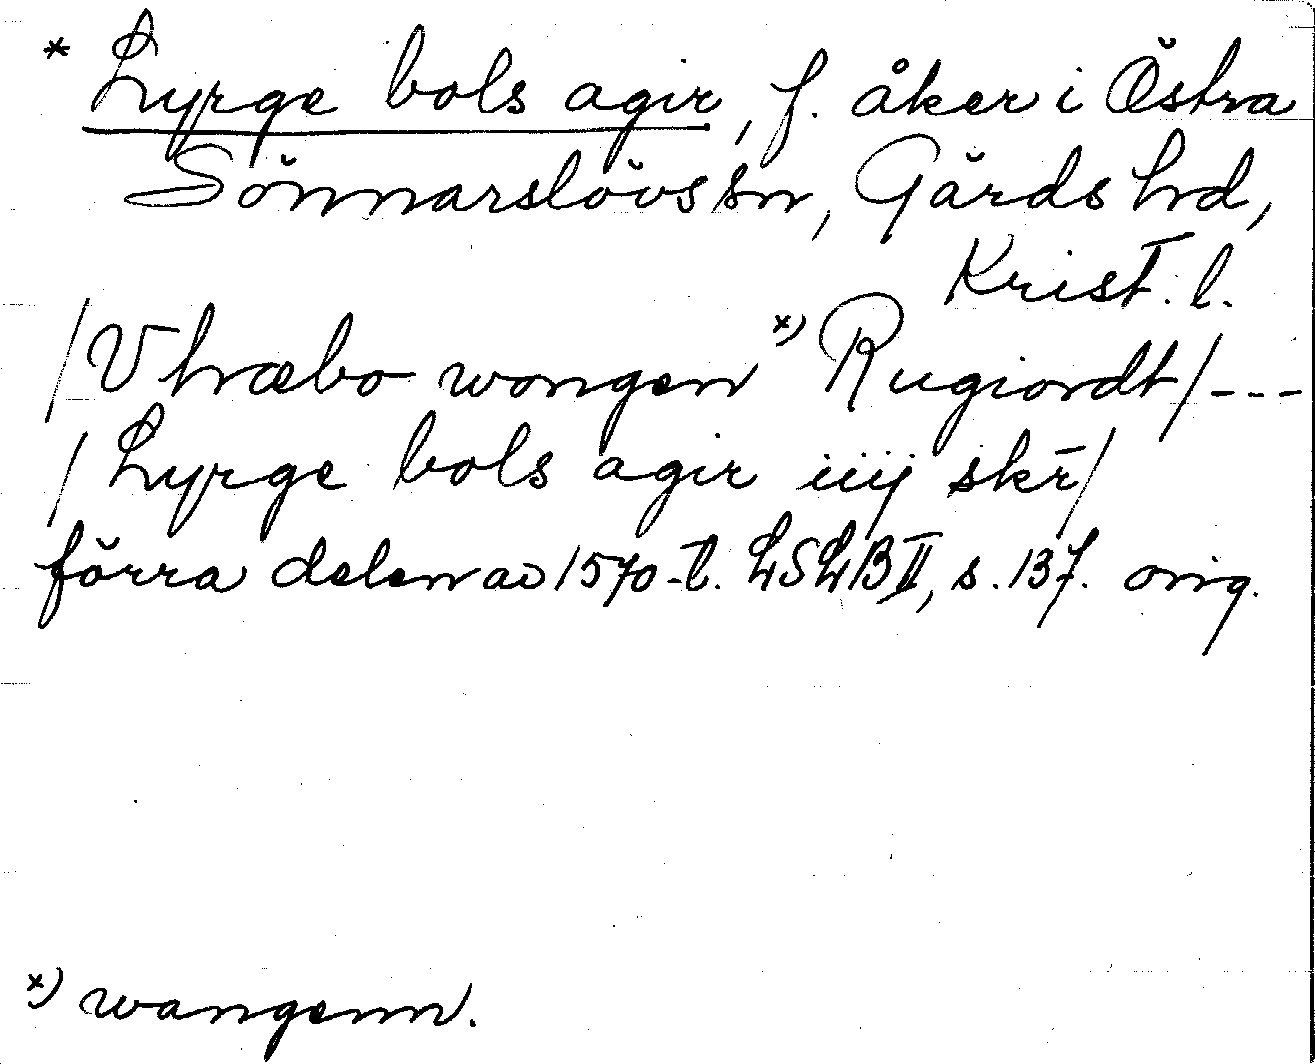 * Lyrge bols agir, f. åker i Östra
Sönnarslövs sn, Gärds hrd,
Krist. l.
/Vhræbo wongen x) Rugiordt/---
/Lyrge bols agir iiij skr̄/
förra delen av 1570-t. LSLB II, s. 137. orig.
x) wangenn.